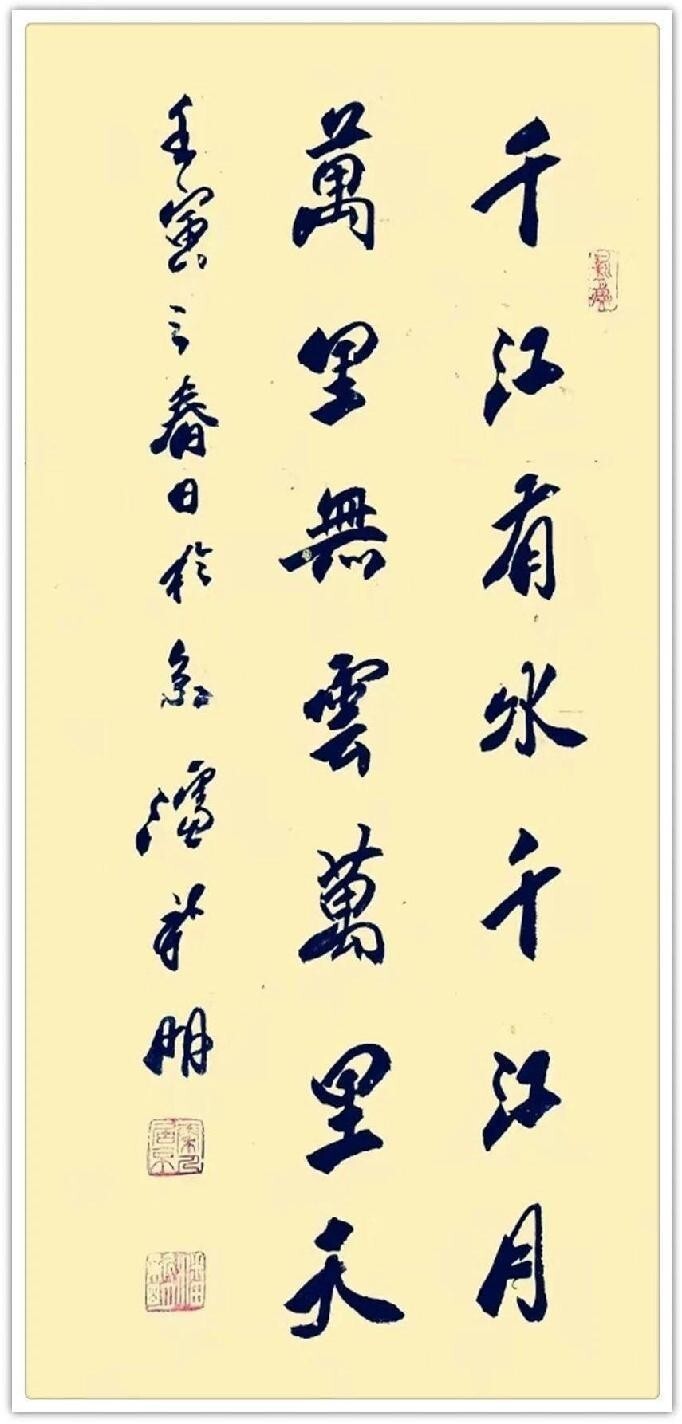 千江有水千江月
萬里無雲萬里天
壬寅之春日於京 潘 明